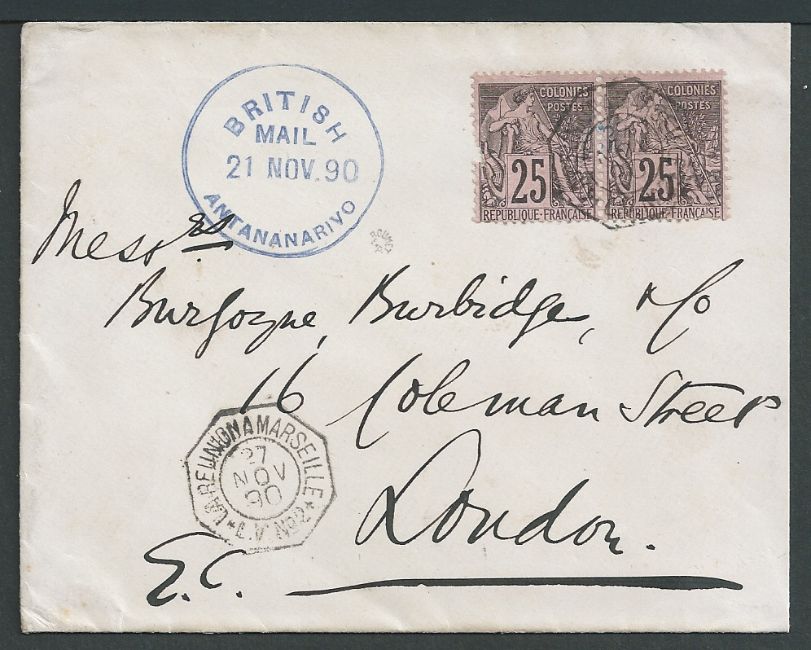 BRITISH
MAIL
21 NOV. 90
ANTANANARIVO
COLONIES
POSTES
25
REPUBLIQUE-FRANÇAISE
COLONIES
POSTES
25
REPUBLIQUE-FRANÇAISE
Messrs
Burgoyne, Burbidge, & Co
16 Coleman Street
London.
E.C.
LA REUNION A MARSEILLE
27
NOV
90
* L.V. N°2 *